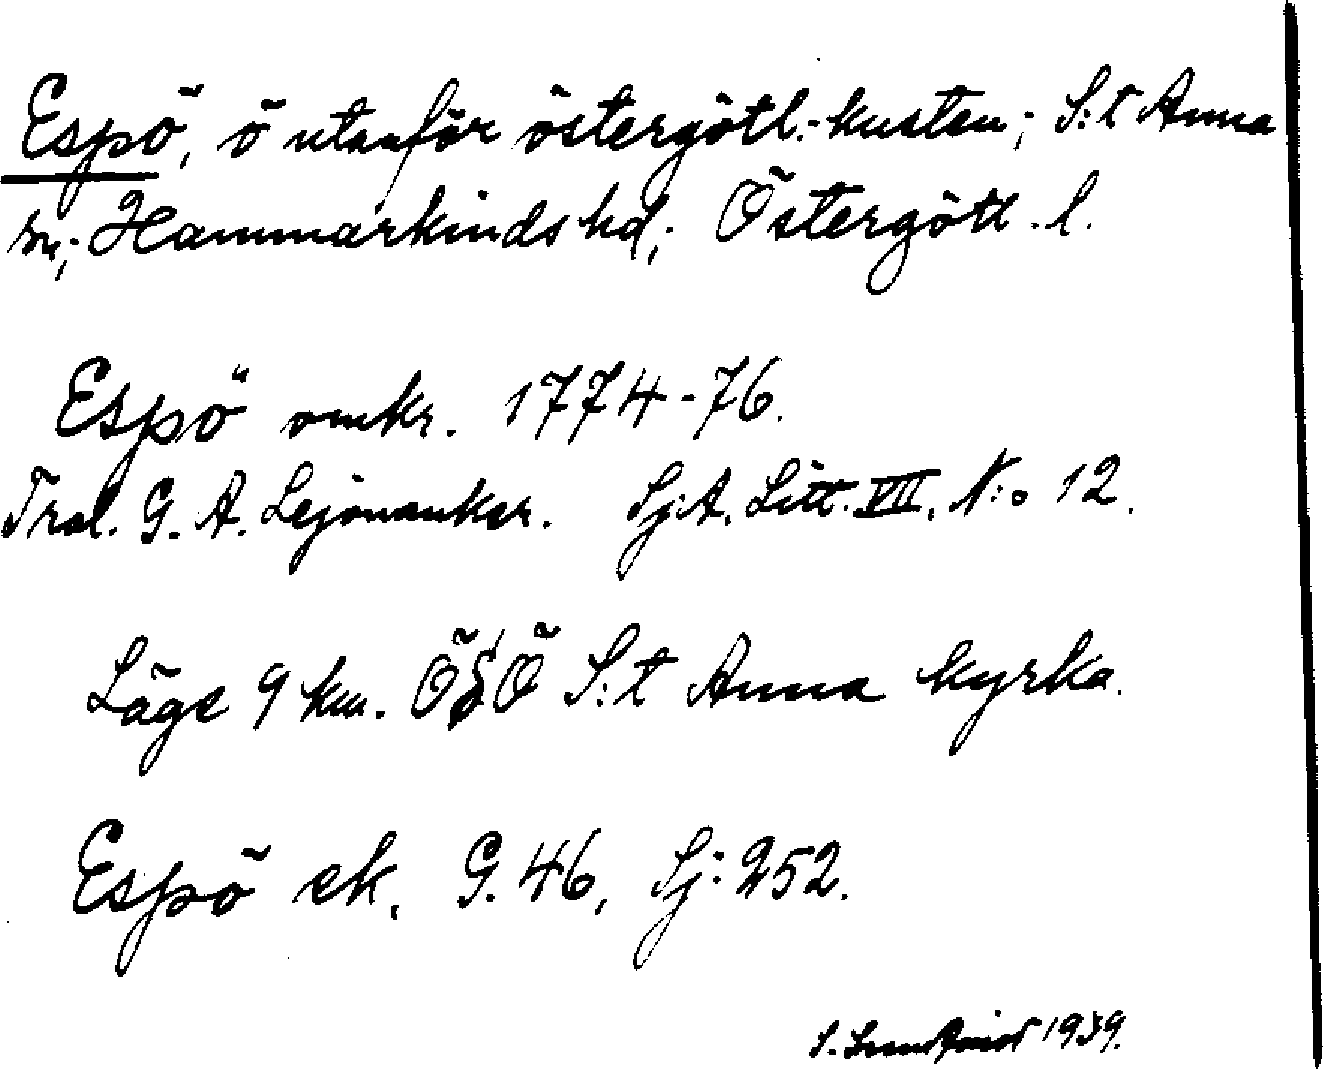 Espö, ö utanför östergötl.-kusten; S:t Anna
sn; Hammarkinds hd; Östergötl. l.
Espö omkr. 1774-76.
Tral. G. A. Lejonanker. Sj:A. Litt. VII. N:o 12.
Läge 9 km. ÖSÖ S:t Anna kyrka.
Espö ek. G. 46, Sj: 252.
S. 1939.